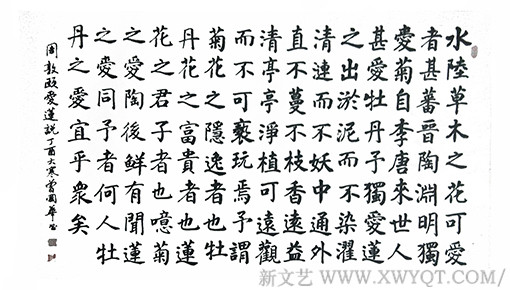 水陸草木之花可愛
者甚蕃晉陶淵明獨
愛菊自李唐來世人
甚愛牡丹予獨愛蓮
之出淤泥而不染濯
清漣而不妖中通外
直不蔓不枝香遠益
清亭亭淨植可遠觀
而不可褻玩焉予謂
菊花之隱逸者也牡
丹花之富貴者也蓮
花之君子者也噫菊
之愛陶後鮮有聞蓮
之愛同予者何人牡
丹之愛宜乎眾矣
周敦頤愛蓮說丁酉大寒曾國華書
新文艺 WWW.XWYQT.COM/